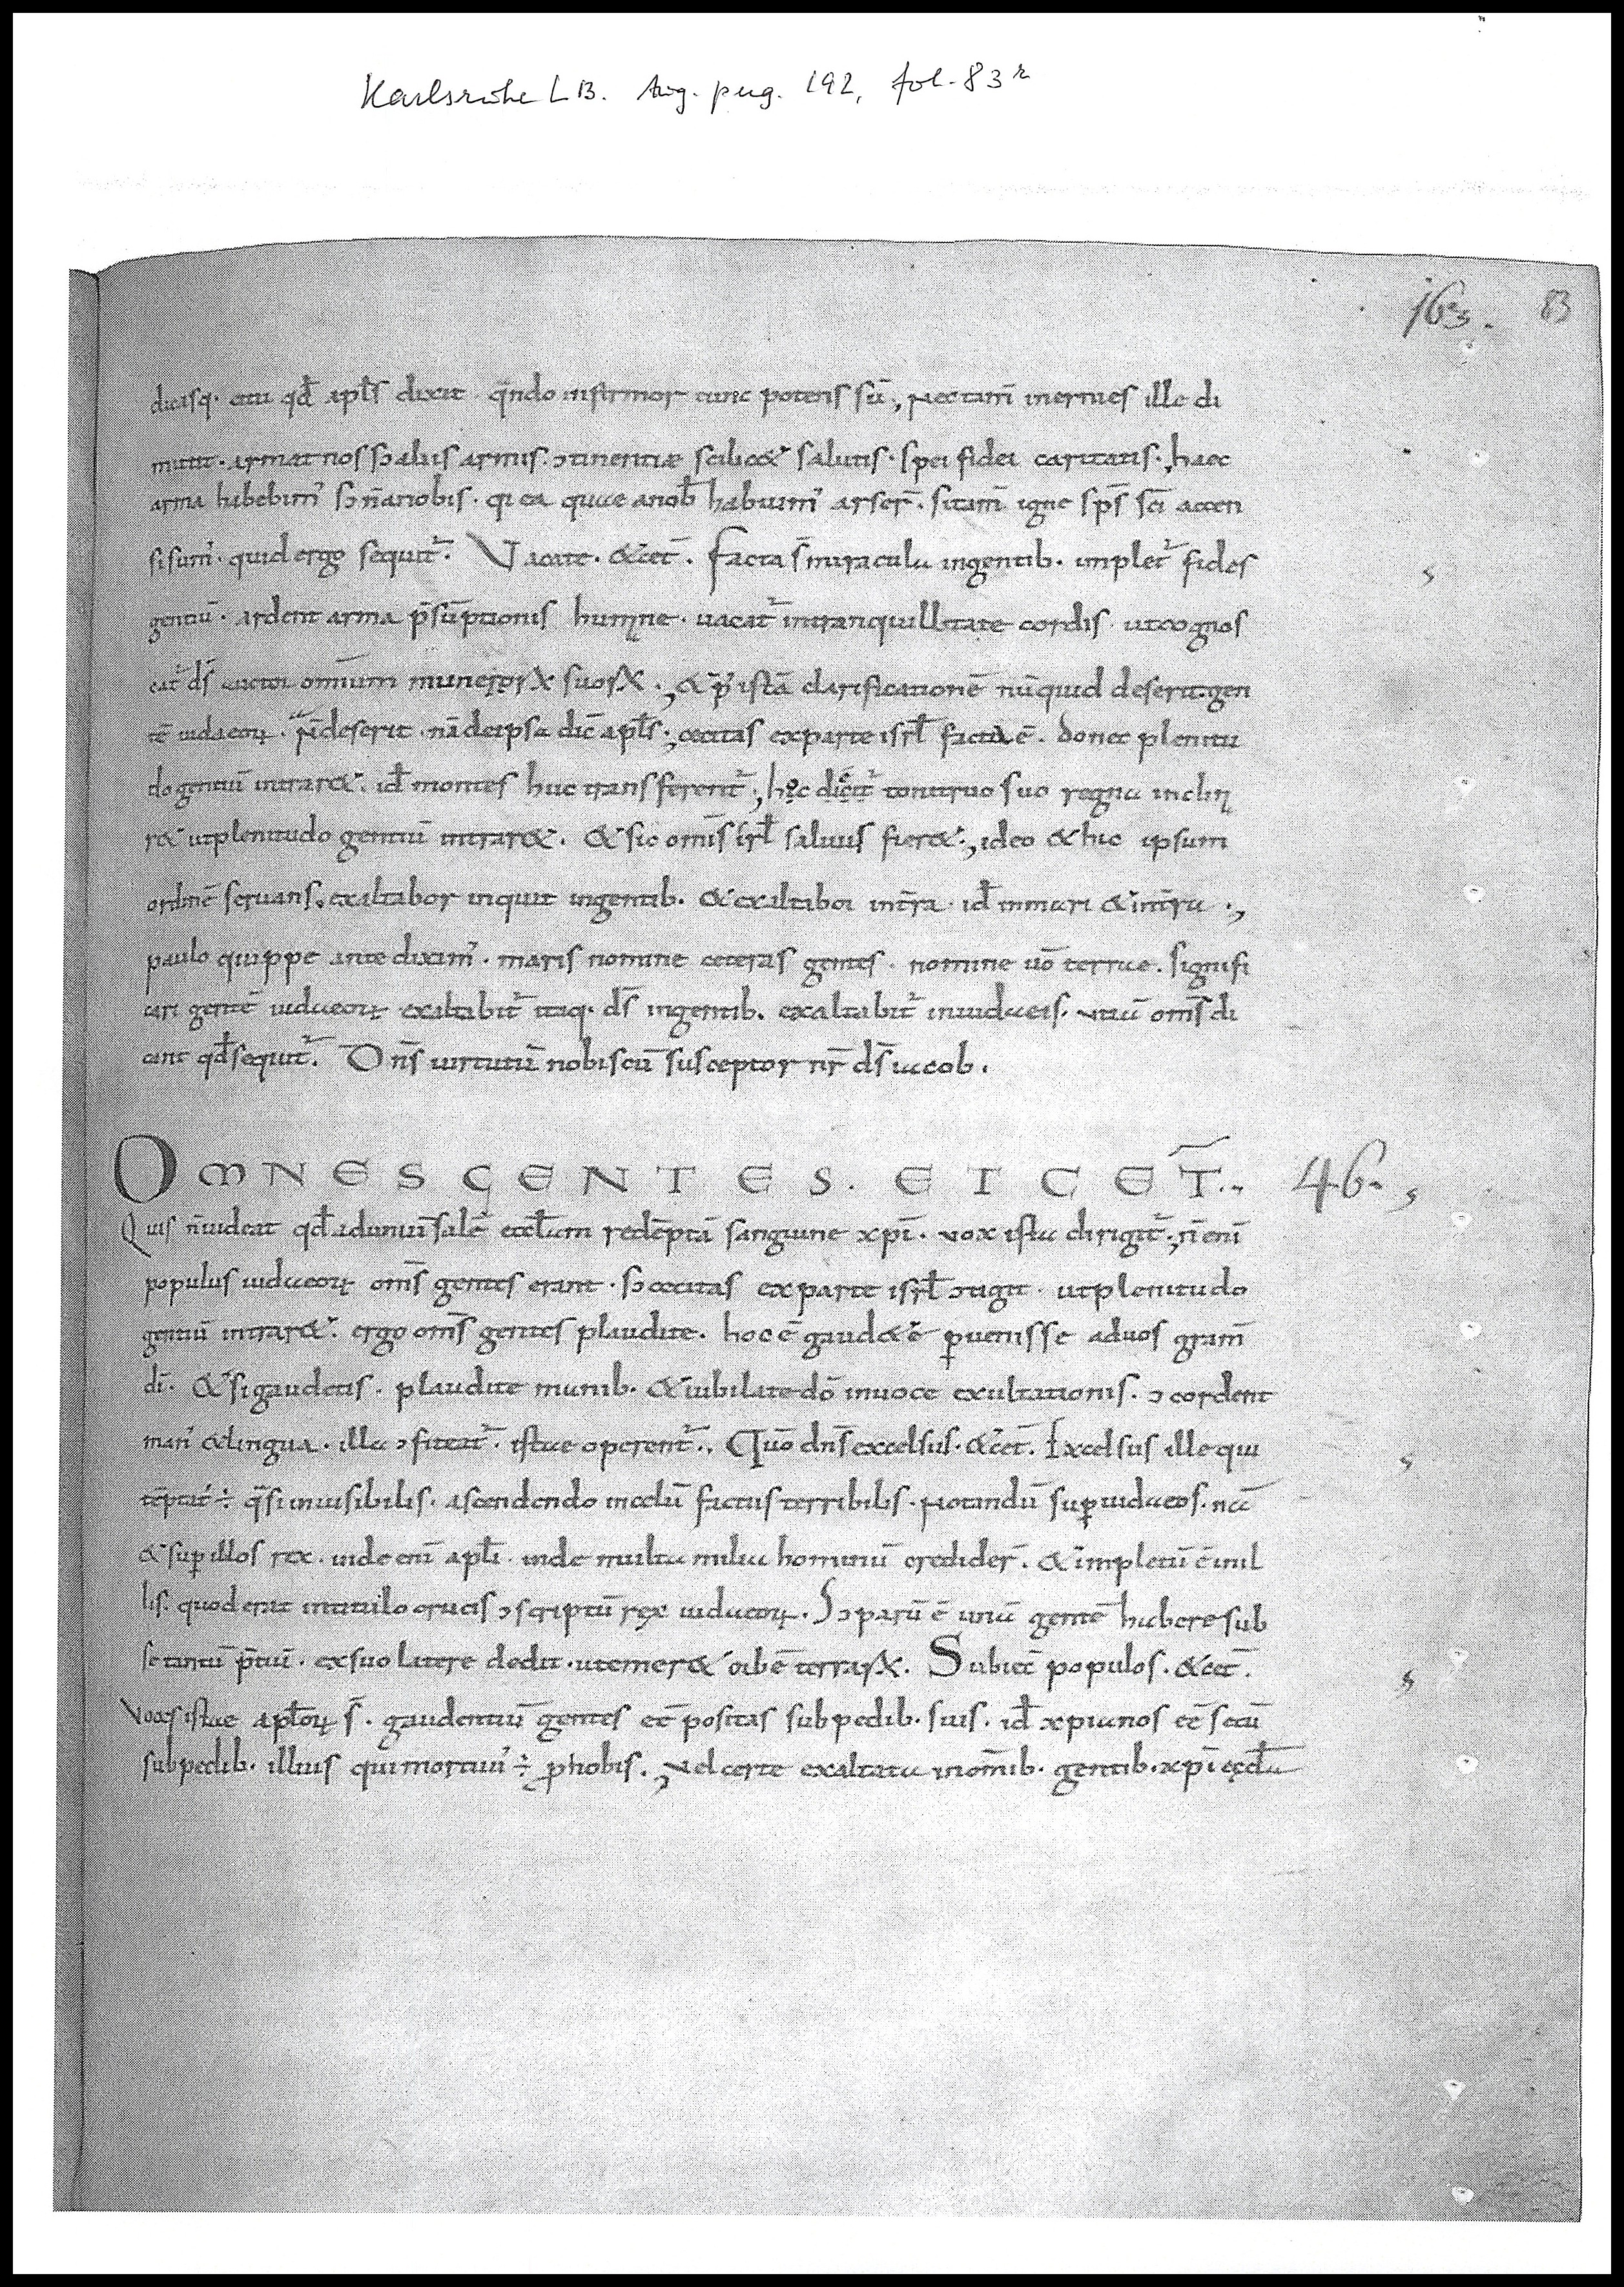 Karlsruhe LB. Aug. perg. 192, fol. 83r
163. 83
dicasq· &tu qđ apľs dixit · q̄ndo infirmor tunc potens sū ·, Nec tam̄ inermes ille di
mittit · armat nos sɔ aliis armis · ɔtinentiæ scilic& salutis · spei fidei caritatis ·, haec
arma habebim' sɔ n̄ a nobis · q ea quae a nob̄ habuim' arser̄ · si tam̄ igne sp̄s sc̄i accen
si sum' · quid ergo sequit᷑. Vacate · &cet̄ . facta s̄ miracula in gentib · implet᷑ fides
gentiū · ardent arma p̄sūptionis humane · uacat᷑ in tranquillitate cordis · ut cognos
cat᷑ ds̄ auctor omnium munerorꝝ suorꝝ ., & p' istā clarificationē nūquid deserit gen
tē iudaeoꝝ · N̄ deserit · nā de ipsa dic̄ apľs ·, cecitas ex parte isrľ facta ē . donec plenitu
do gentiū intrar& · id̄ montes huc transferent᷑ ·, hęc dicit᷑ tonitruo suo regna inclin
r& ut plenitudo gentiū intrar& . & sic omīs isrľ saluus fier& ·, ideo & hic ipsum
ordinē seruans, exaltabor inquit in gentib · & exaltabor in t̄ra · id̄ in mari & in t̄ra ·,
paulo quippe ante dixim' · maris nomine ceteras gentes · nomine ūo terrae . signifi
cari gentē iudaeoꝝ exaltabit᷑ itaq· ds̄ in gentib · exaltabit᷑ in iudaeis · oms̄ di
cant qđ sequit᷑. Dn̄s uirtutū nobiscū susceptor nr̄ ds̄ iacob .
OMNES GENTES. ET CET̄. 46.
Quis n̄ uideat qđ ad uniūsalē eccľam redēptā sanguine xp̄i · uox ista dirigit᷑ ·, n̄ enī
populus iudaeoꝝ oms̄ gentes erant · sɔ cecitas ex parte isrľ ɔtigit · ut plenitudo
gentiū intrar& · ergo oms̄ gentes plaudite · hoc ē gaud&e ꝑuenisse ad uos gram̄
dī · & si gaudetis · plaudite manib · & iubilate dō in uoce exultationis · ɔcordent
man' & lingua · illa ɔfiteat᷑ · istae operent᷑ ., Qm̄ dn̄s excelsus · &cet̄ . Excelsus ille qui
tēptat' ÷ q̄si inuisibilis · ascendendo in celū factus terribilis · Notandū suꝑ iudaeos · nā
& suꝑ illos rex · inde enī apľi · inde multa milia hominū credider̄ . & impletū ē in il
lis · quod erat in titulo crucis ɔscriptū rex iudaeoꝝ . Sɔ parū ē unā gentē habere sub
se tantū p̄tiū · ex suo latere dedit · ut emer& orbē terrarꝝ . Subiec̄ populos · &cet̄ .
Voces istae apľoꝝ s̄ · gaudentiū gentes eē positas sub pedib · suis · id̄ xp̄ianos eē secū
sub pedib · illius qui mortuu' ÷ ꝓ nobis ·, Vel certe exaltata in omīb · gentib · xp̄i ęccľa